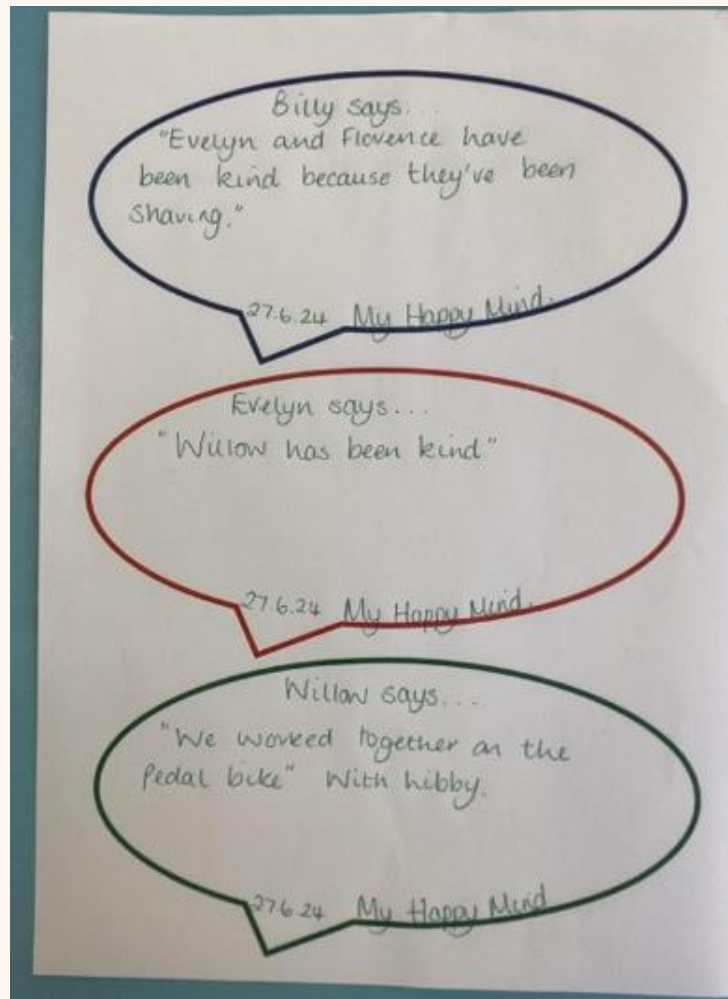 Billy says...
"Evelyn and Florence have
been kind because they've been
sharing."
27.6.24 My Happy Mind.
Evelyn says...
"Willow has been kind"
27.6.24 My Happy Mind.
Willow says...
"We worked together on the
Pedal bike" With Libby.
27.6.24 My Happy Mind